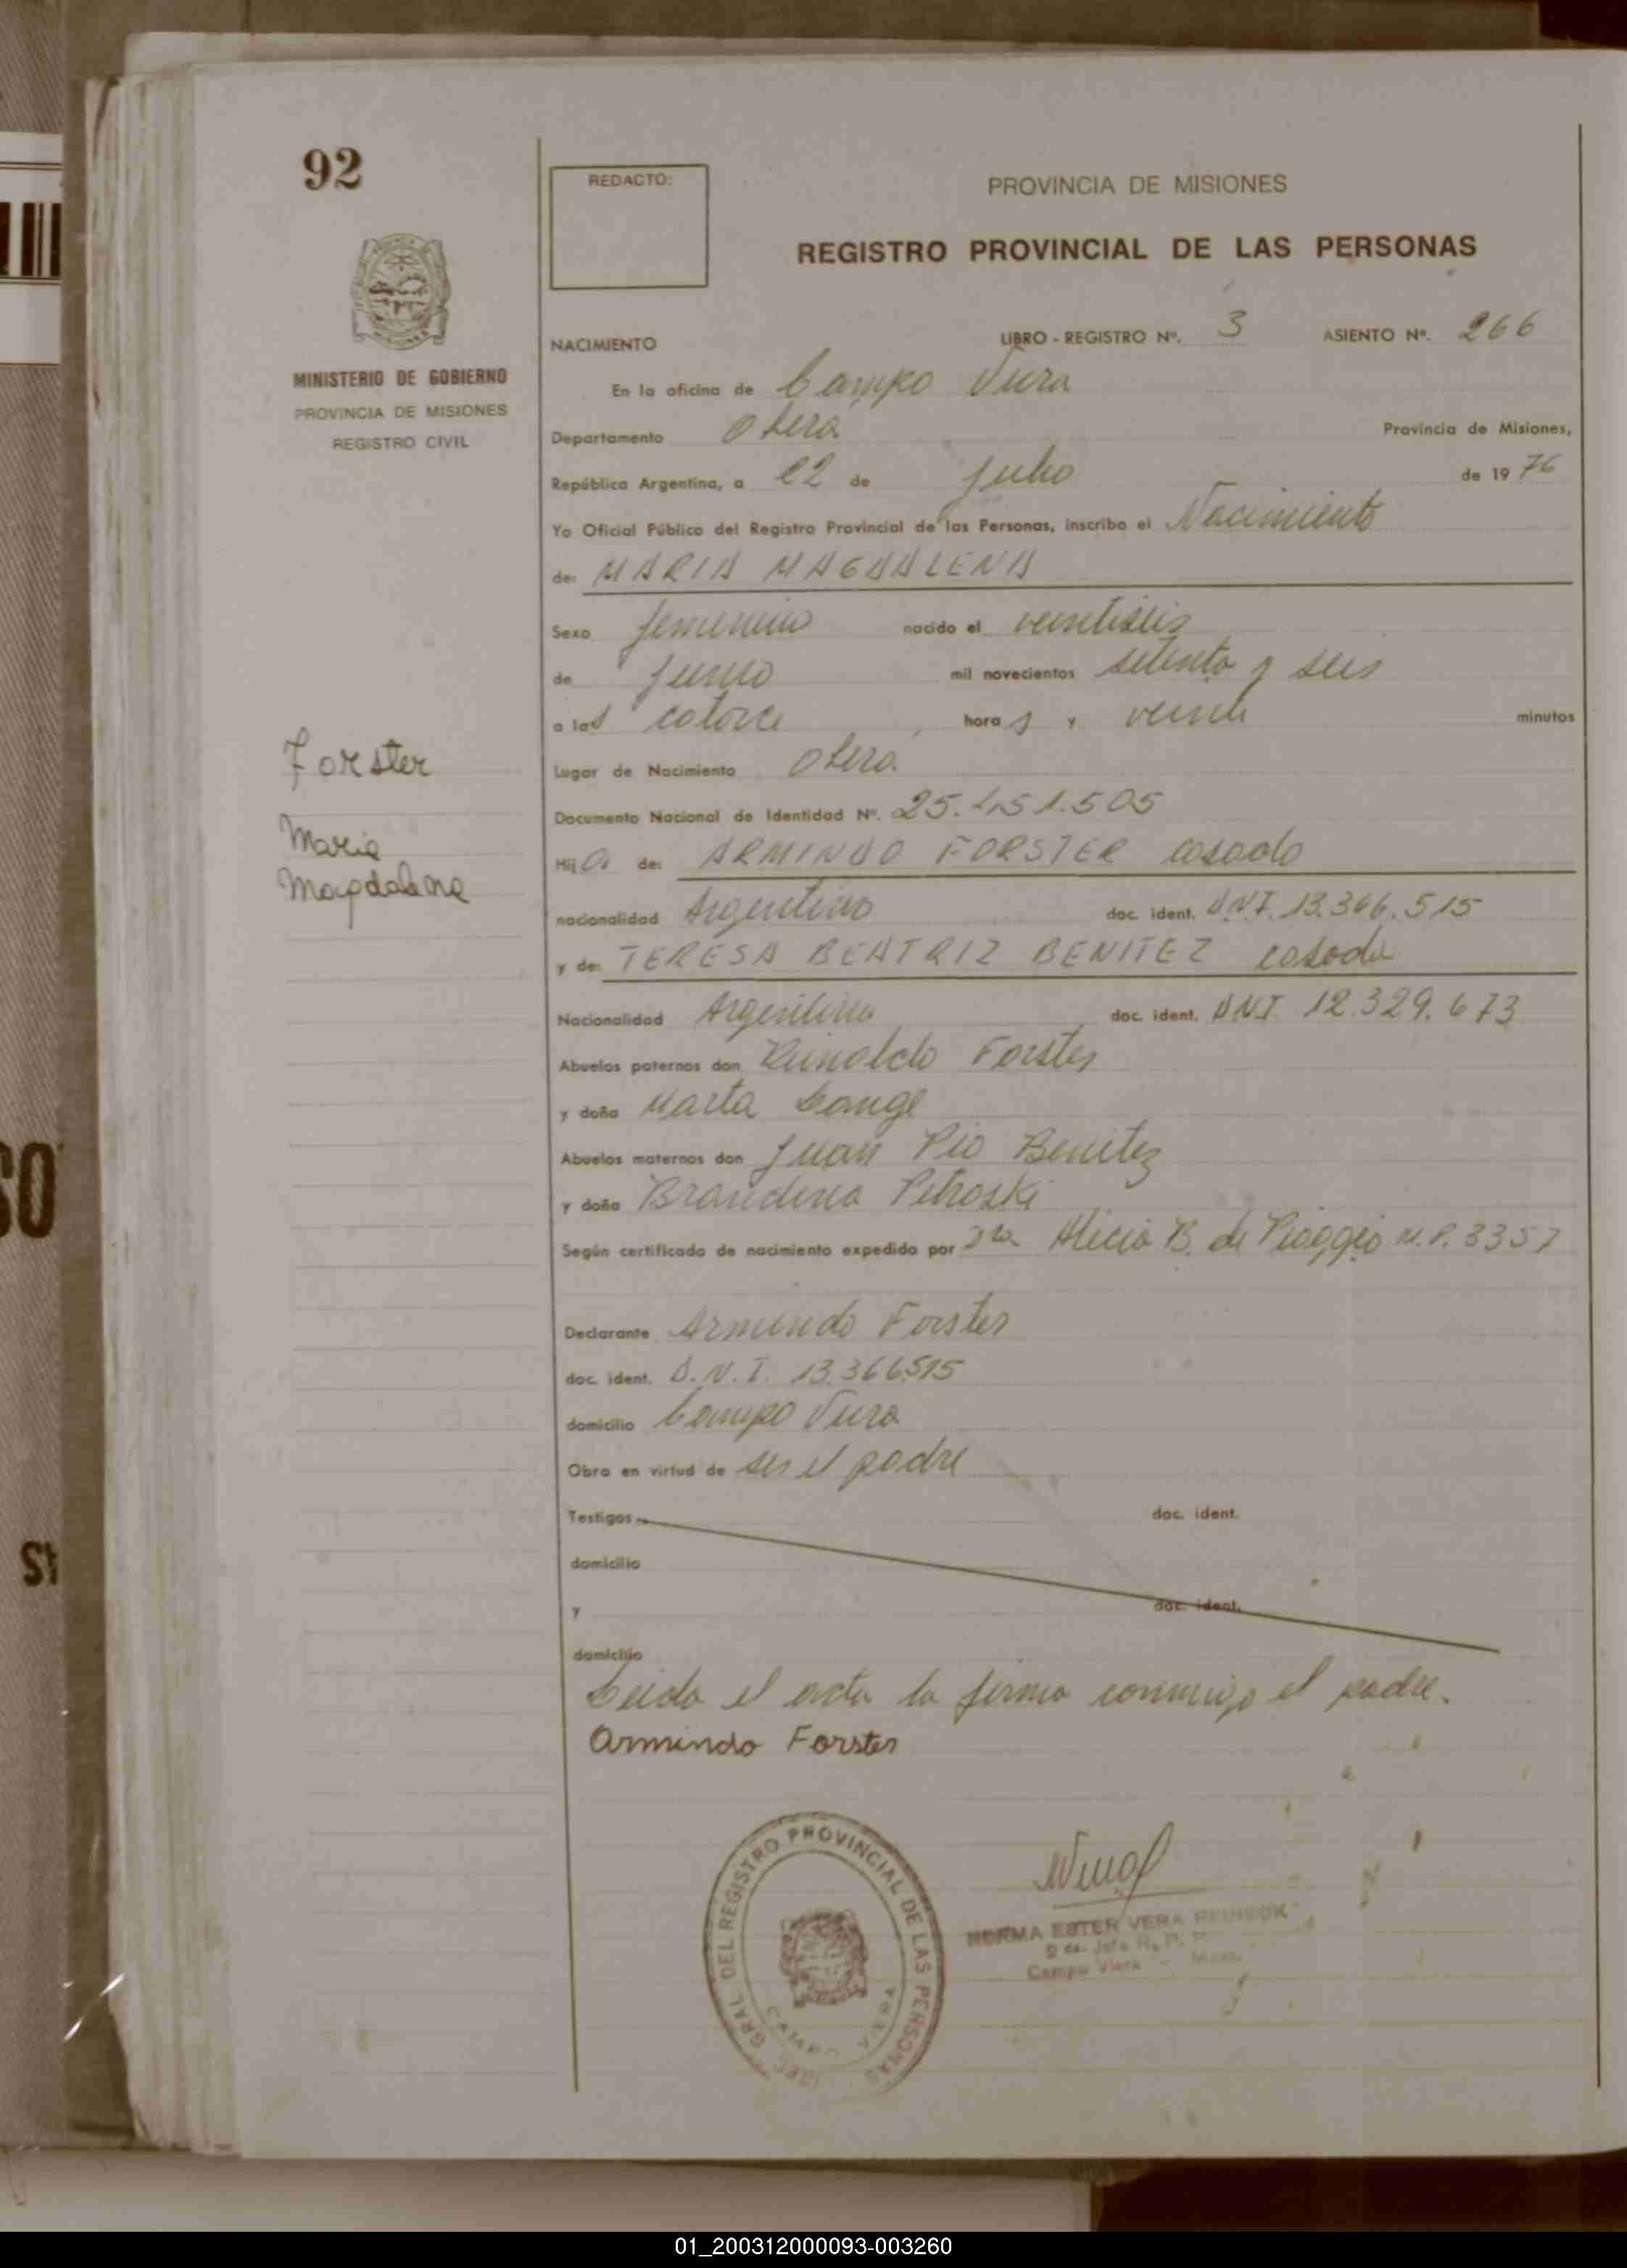 92
REDACTO:
PROVINCIA DE MISIONES
REGISTRO PROVINCIAL DE LAS PERSONAS
MINISTERIO DE GOBIERNO
PROVINCIA DE MISIONES
REGISTRO CIVIL
NACIMIENTO LIBRO - REGISTRO Nº. 3 ASIENTO Nº. 266
En la oficina de Campo Viera
Departamento Oberá Provincia de Misiones,
República Argentina, a 22 de Julio de 1976
Yo Oficial Público del Registro Provincial de las Personas, inscribo el Nacimiento
de: MARIA MAGDALENA
Sexo femenino nacido el veintiseis
de Junio mil novecientos setenta y seis
a las catorce horas y veinte minutos
Forster
Maria
Magdalena
Lugar de Nacimiento Oberá
Documento Nacional de Identidad Nº. 25.451.505
Hija de: ARMINDO FORSTER casado
nacionalidad Argentino doc. ident. DNI. 13.366.515
y de: TERESA BEATRIZ BENITEZ casada
Nacionalidad Argentina doc. ident. DNI. 12.329.673
Abuelos paternos don Reinoldo Forster
y doña Marta Lange
Abuelos maternos don Juan Pio Benitez
y doña Brandina Petroski
Según certificado de nacimiento expedido por Dra Alicia B. de Pioggio M.P. 3357
Declarante Armindo Forster
doc. ident. D.N.I. 13.366515
domicilio Campo Viera
Obra en virtud de ser el padre
Testigos doc. ident.
domicilio
y doc. ident.
domicilio
Leida el acta la firma conmigo el padre.
Armindo Forster
GRAL DEL REGISTRO PROVINCIAL DE LAS PERSONAS
CAMPO VIERA
NORMA ESTER VERA
Campo Viera
01_200312000093-003260